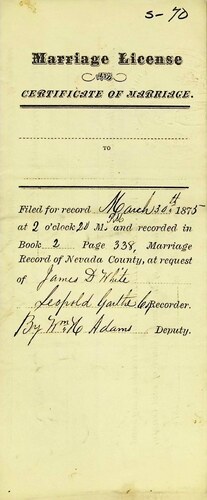 S-70
Marriage License
AND
CERTIFICATE OF MARRIAGE.
TO
Filed for record March 30th 1875
at 2 o'clock 20 P.M. and recorded in
Book 2 Page 338, Marriage
Record of Nevada County, at request
of James D White
Leopold Garthe Co Recorder.
By Wm H Adams Deputy.